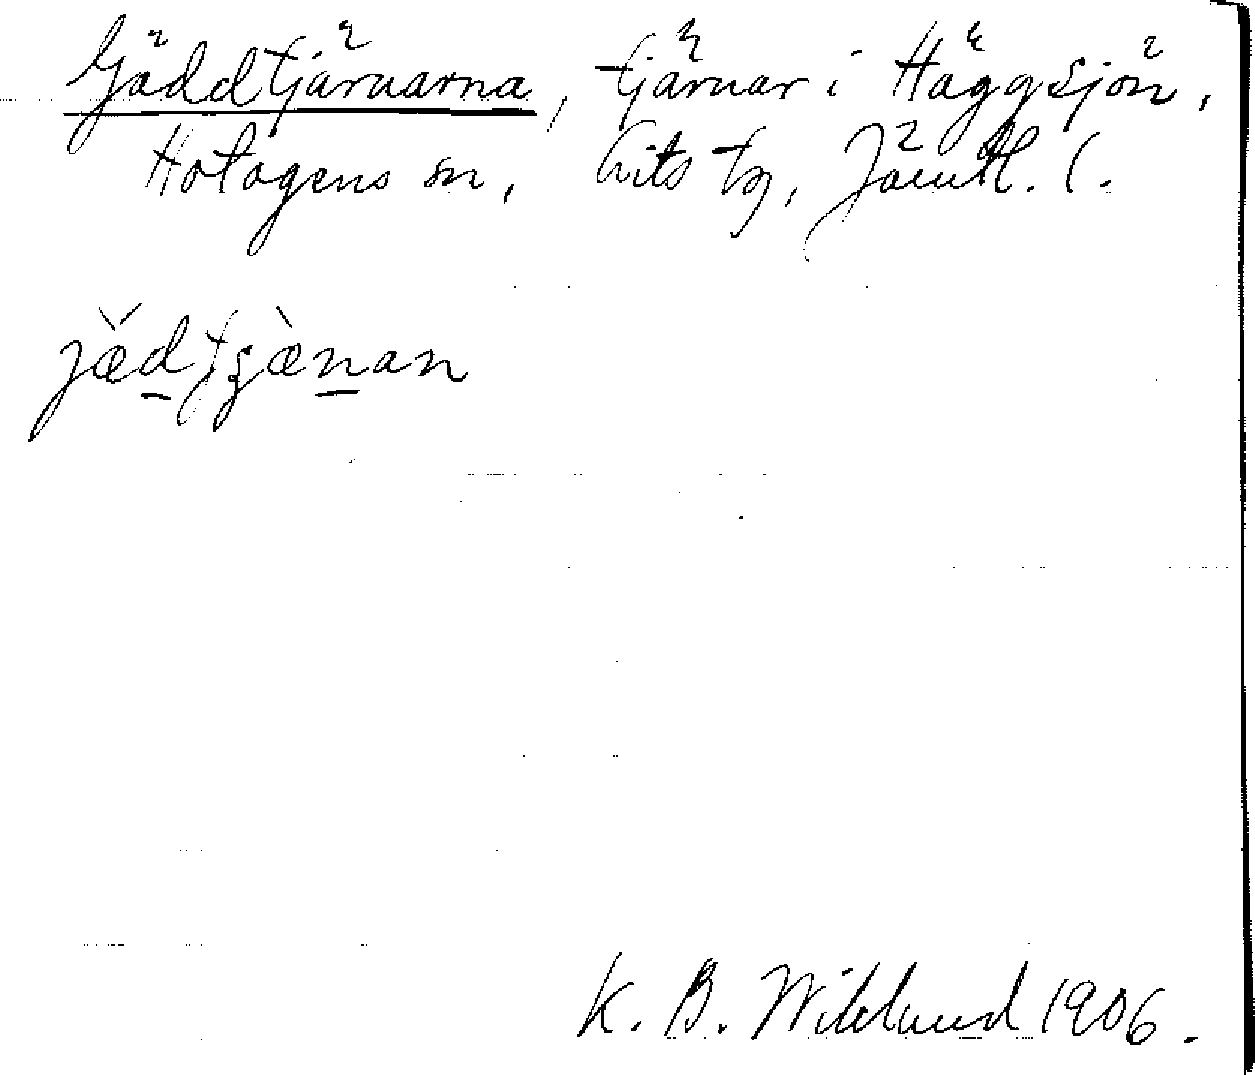 Gäddtjärnarna, tjärnar i Häggsjön,
Hotagens sn, Lits tg, Jämtl. l.
jæ̌dtʒæ̀nan
K. B. Wiklund 1906.